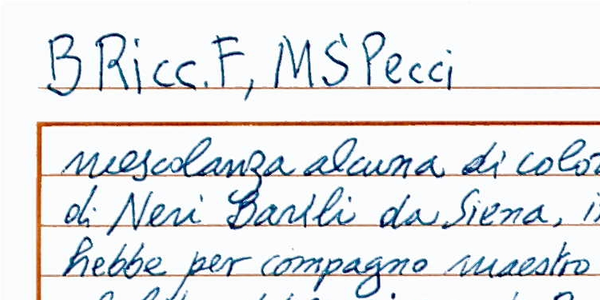 B Ricc. F, MS Pecci
mescolanza alcuna di color
di Neri Barili da Siena,
hebbe per compagno maestro